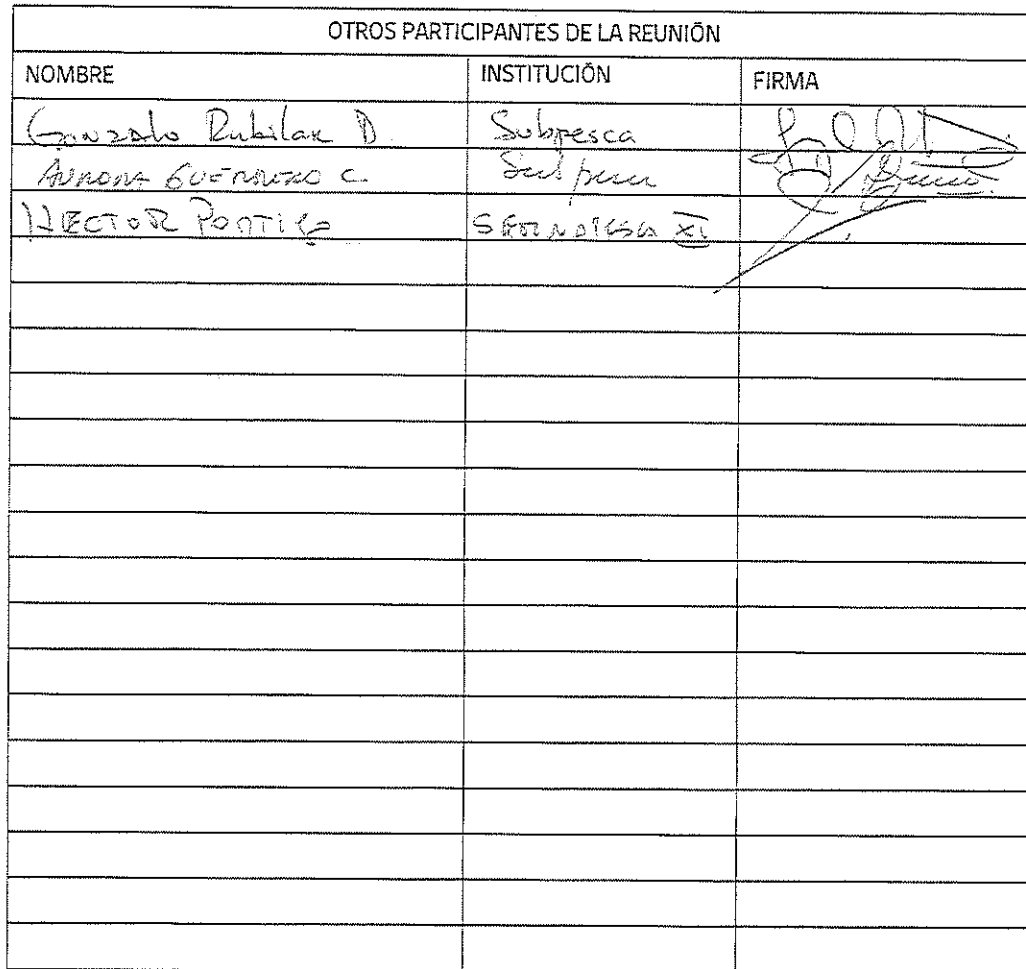 OTROS PARTICIPANTES DE LA REUNIÓN
NOMBRE INSTITUCIÓN FIRMA
Gonzalo Rubilar D. Subpesca
AURORA GUERRERO C. Subpesca
HECTOR PONTIGO SERNAPESCA XI